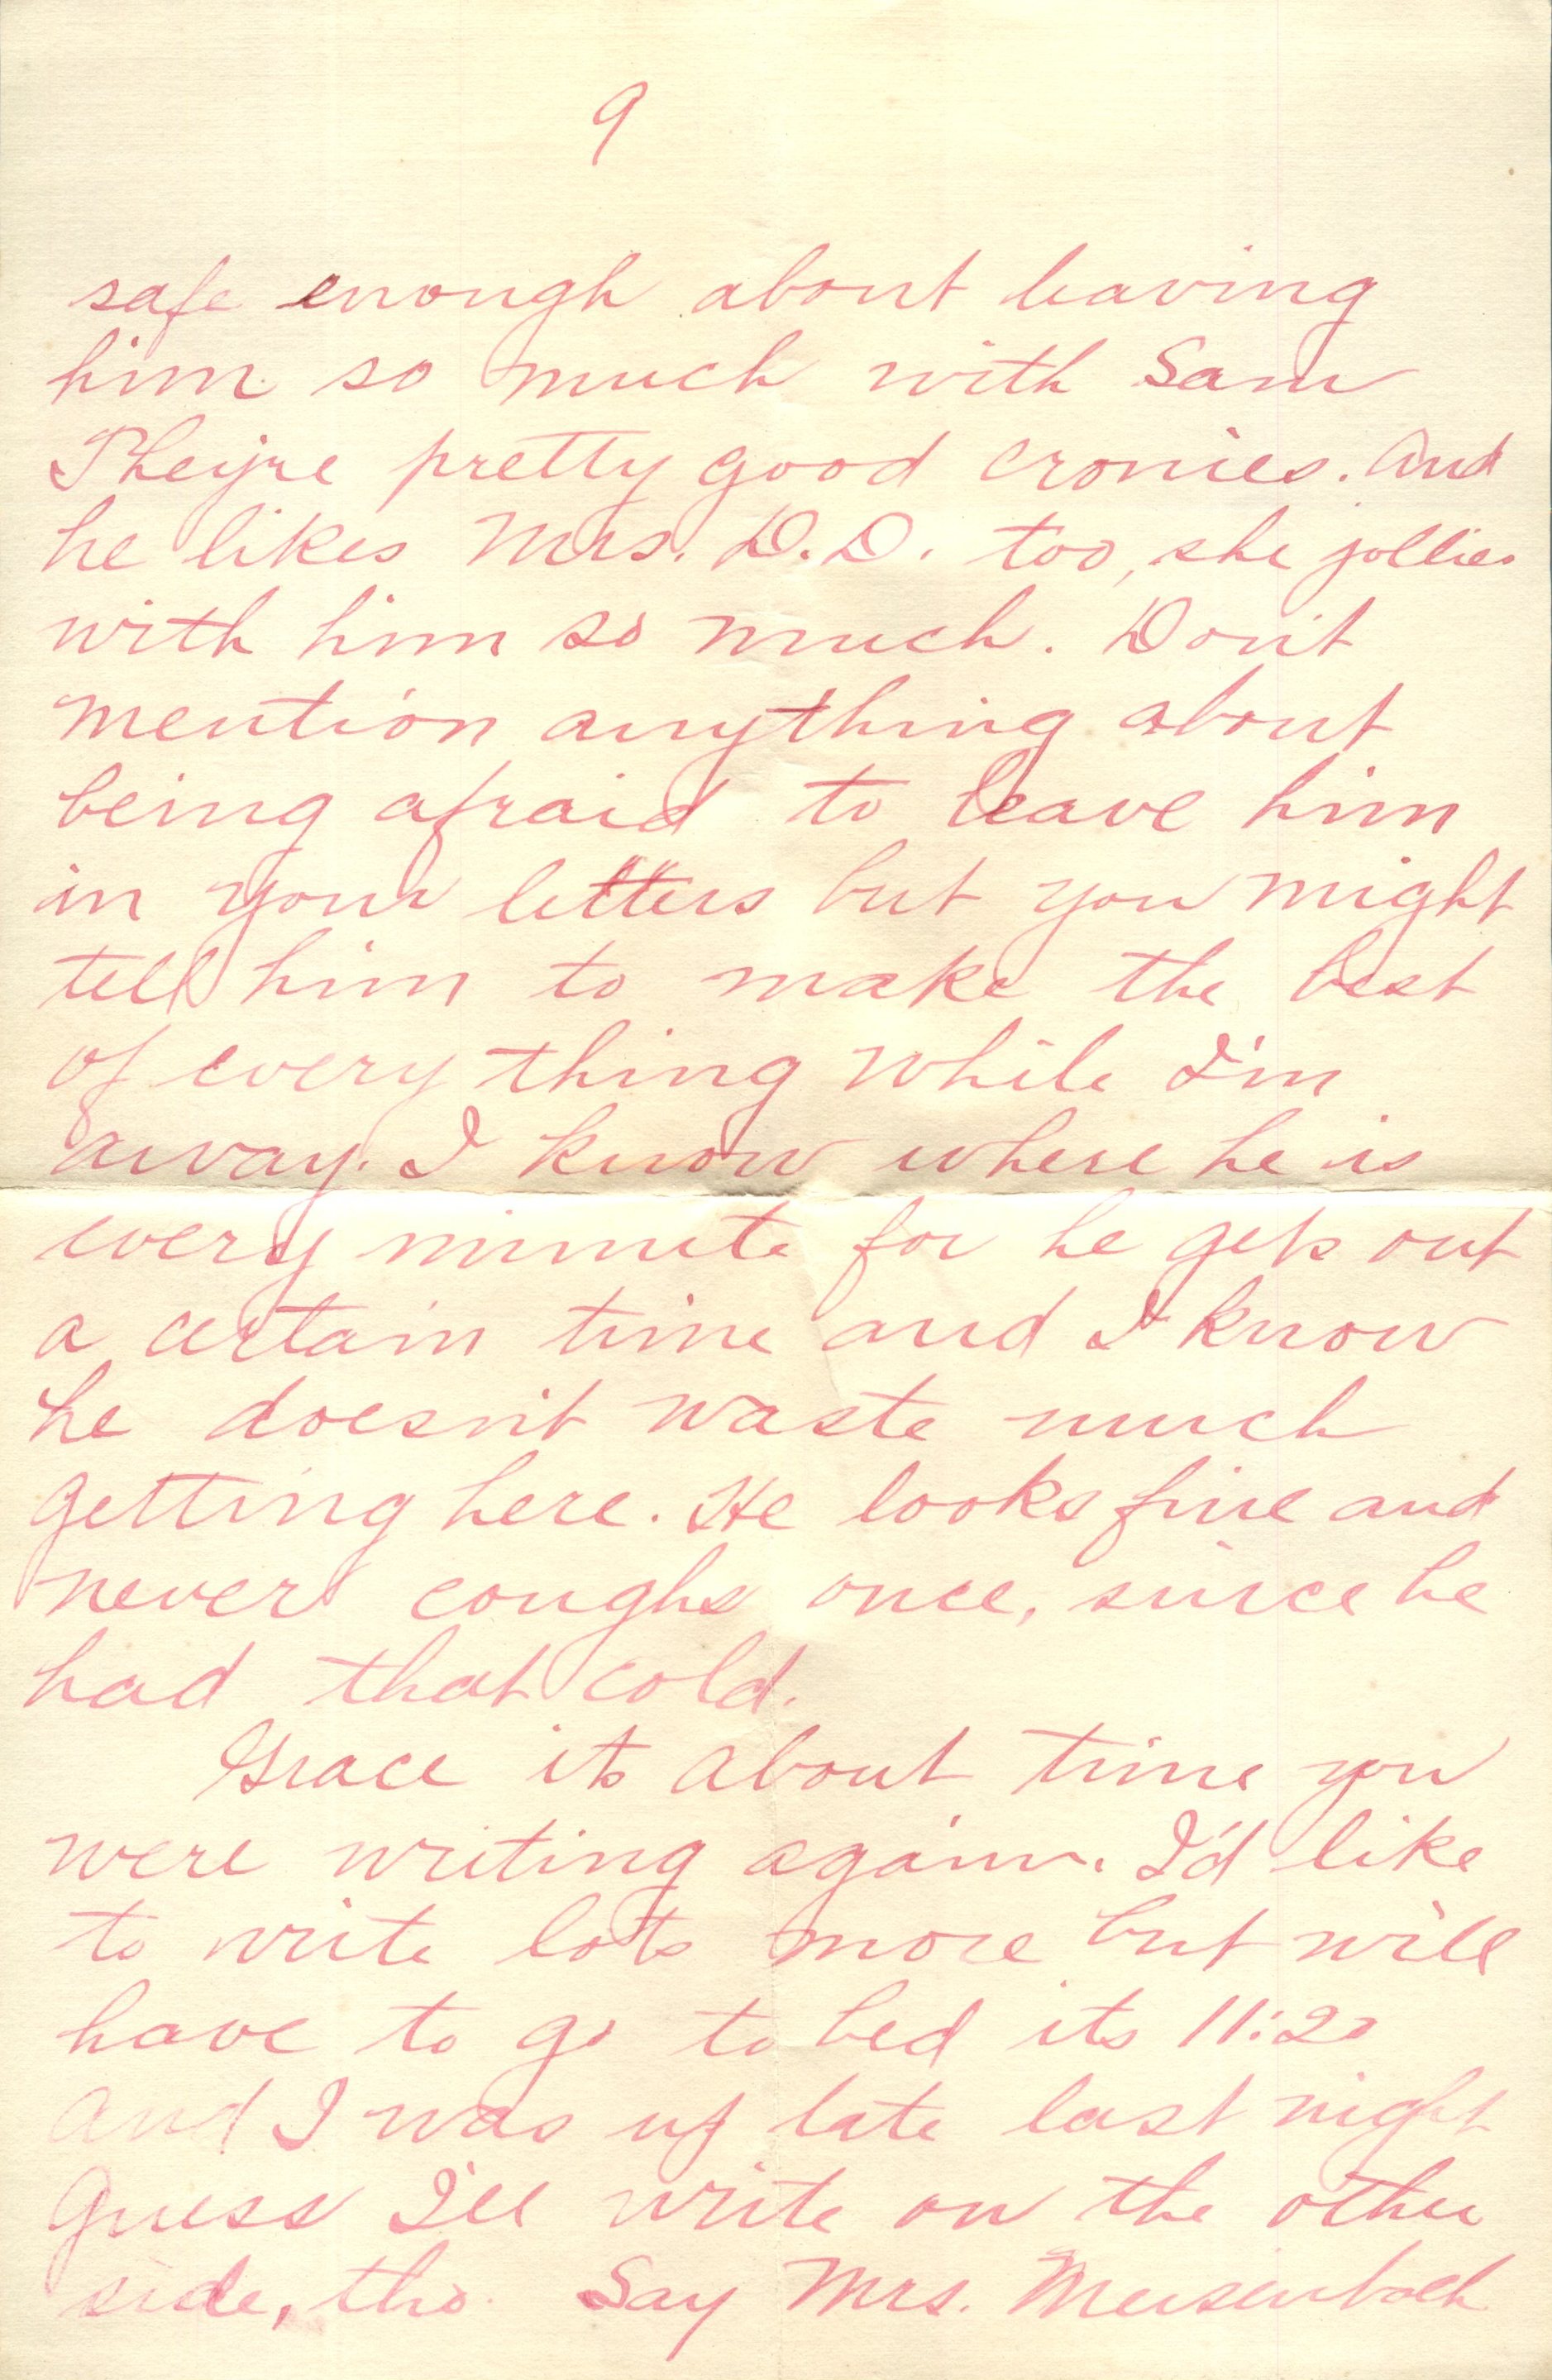 9
safe enough about leaving
him so much with Sam
They're pretty good cronies. And
he likes Mrs. D.D. too, she jollies
with him so much. Don't
mention anything about
being afraid to leave him
in your letters but you might
tell him to make the best
of every thing while I'm
away. I know where he is
every minute for he gets out
a certain time and I know
he doesn't waste much
getting here. He looks fine and
never coughs once, since he
had that cold.
Grace its about time you
were writing again. I'd like
to write lots more but will
have to go to bed its 11:20
and I was up late last night
Guess I'll write on the other
side, tho. Say Mrs. Meisenbach